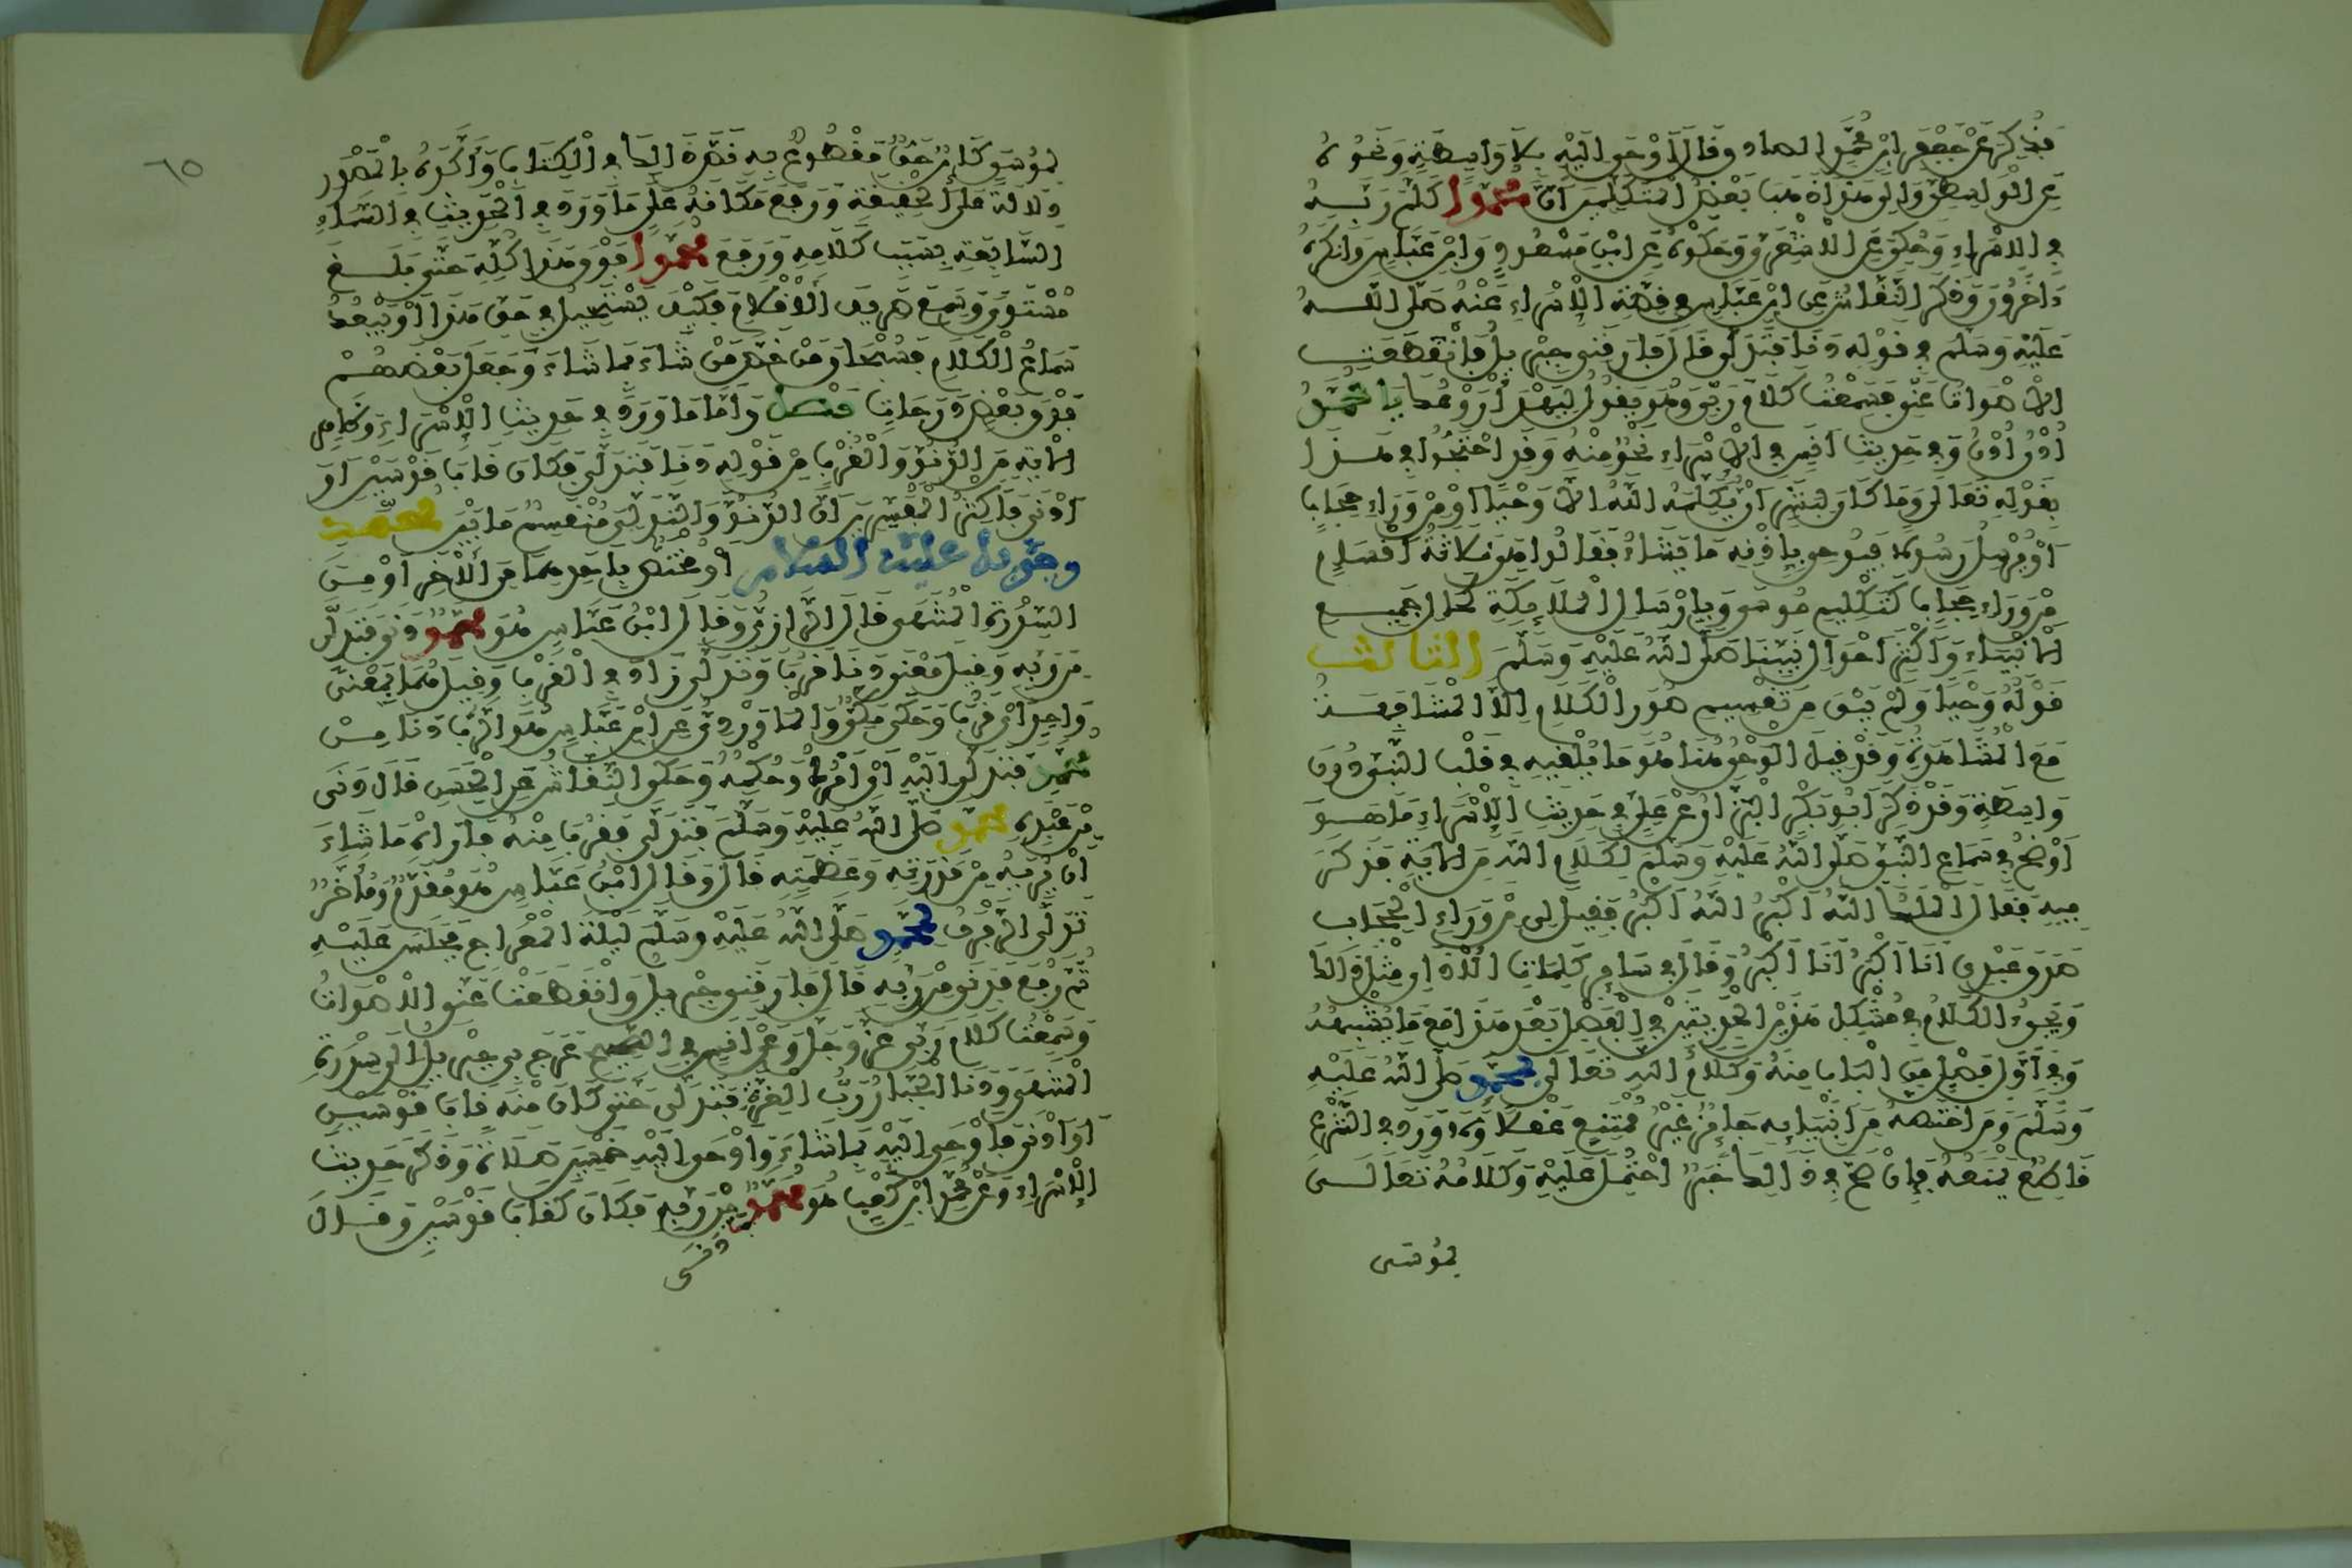 فذكر عن جعفر ابن محمد الصادق قال اوحى اليه بلا واسطة ونحوه
عن الواسطي والى هذا ذهب بعض المتكلمين ان محمدا كلم ربه
في الاسراء وحكي عن الاشعري وحكوه عن ابن مسعود وابن عباس وانكره
ءاخرون وذكر النقاش عن ابن عباس في قصة الاسراء عنه صلى الله
عليه وسلم في قوله دنا فتدلى قال فارقني جبريل فانقطعت
الاصوات عني فسمعت كلام ربي وهو يقول ليهدأ روعك يا محمد
ادن ادن وفي حديث انس في الاسراء نحو منه وقد احتجوا في هذا
بقوله تعالى وما كان لبشر ان يكلمه الله الا وحيا او من وراء حجاب
او يرسل رسولا فيوحي باذنه ما يشاء فقالوا هي ثلاثة اقسام
من وراء حجاب كتكليم موسى وبارسال الملائكة كحال جميع
الانبياء واكثر احوال نبينا صلى الله عليه وسلم الثالث
قوله وحيا ولم يبق من تقسيم صور الكلام الا المشافهة
مع المشاهدة وقد قيل الوحي هنا هو ما يلقيه في قلب النبي دون
واسطة وقد ذكر ابو بكر البزار عن علي في حديث الاسراء ما هو
اوضح في سماع النبي صلى الله عليه وسلم لكلام الله من الاية فذكر
فيه فقال الملك الله اكبر الله اكبر فقيل لي من وراء الحجاب
صدق عبدي انا اكبر انا اكبر وقال في سائر كلمات الاذان مثل ذلك
ويجيء الكلام في مشكل هذين الحديثين في الفصل بعد هذا مع ما يشبهه
وفي اول فصل من الباب منه وكلام الله تعالى لمحمد صلى الله عليه
وسلم ومن اختصه من انبيائه جائز غير ممتنع عقلا ولا ورد في الشرع
قاطع يمنعه فان صح في ذلك خبر احتمل عليه وكلامه تعالى
لموسى
٦٥
لموسى كائن حق مقطوع به نص ذلك في الكتاب واكده بالمصدر
دلالة على الحقيقة ورفع مكانه على ما ورد في الحديث في السماء
السابعة بسبب كلامه ورفع محمدا فوق هذا كله حتى بلغ
مستوى وسمع صريف الاقلام فكيف يستحيل في حق هذا او يبعد
سماع الكلام فسبحان من خص من شاء بما شاء وجعل بعضهم
فوق بعض درجات فصل واما ما ورد في حديث الاسراء وظاهر
الاية من الدنو والقرب من قوله دنا فتدلى فكان قاب قوسين او
ادنى فاكثر المفسرين ان الدنو والتدلي منقسم ما بين محمد
وجبريل عليه السلام او مختص باحدهما من الاخر او من
السدرة المنتهى قال الرازي وقال ابن عباس هو محمد دنى فتدلى
من ربه وقيل معنى دنا قرب وتدلى زاد في القرب وقيل هما بمعنى
واحد اي قرب وحكى مكي والماوردي عن ابن عباس هو الرب دنا من
محمد فتدلى اليه اي امره وحكمه وحكى النقاش عن الحسن قال دنى
من عبده محمد صلى الله عليه وسلم فتدلى فقرب منه فاراه ما شاء
ان يريه من قدرته وعظمته قال وقال ابن عباس هو مقدم ومؤخر
تدلى الرفرف لمحمد صلى الله عليه وسلم ليلة المعراج فجلس عليه
ثم رفع فدنى من ربه قال فارقني جبريل وانقطعت عني الاصوات
وسمعت كلام ربي عز وجل وعن انس في الصحيح عرج بي جبريل الى سدرة
المنتهى ودنا الجبار رب العزة فتدلى حتى كان منه قاب قوسين
او ادنى فاوحى اليه بما شاء واوحى اليه خمسين صلاة وذكر حديث
الاسراء وعن محمد ابن كعب هو محمد من ربه فكان كقاب قوسين وقال
دنى